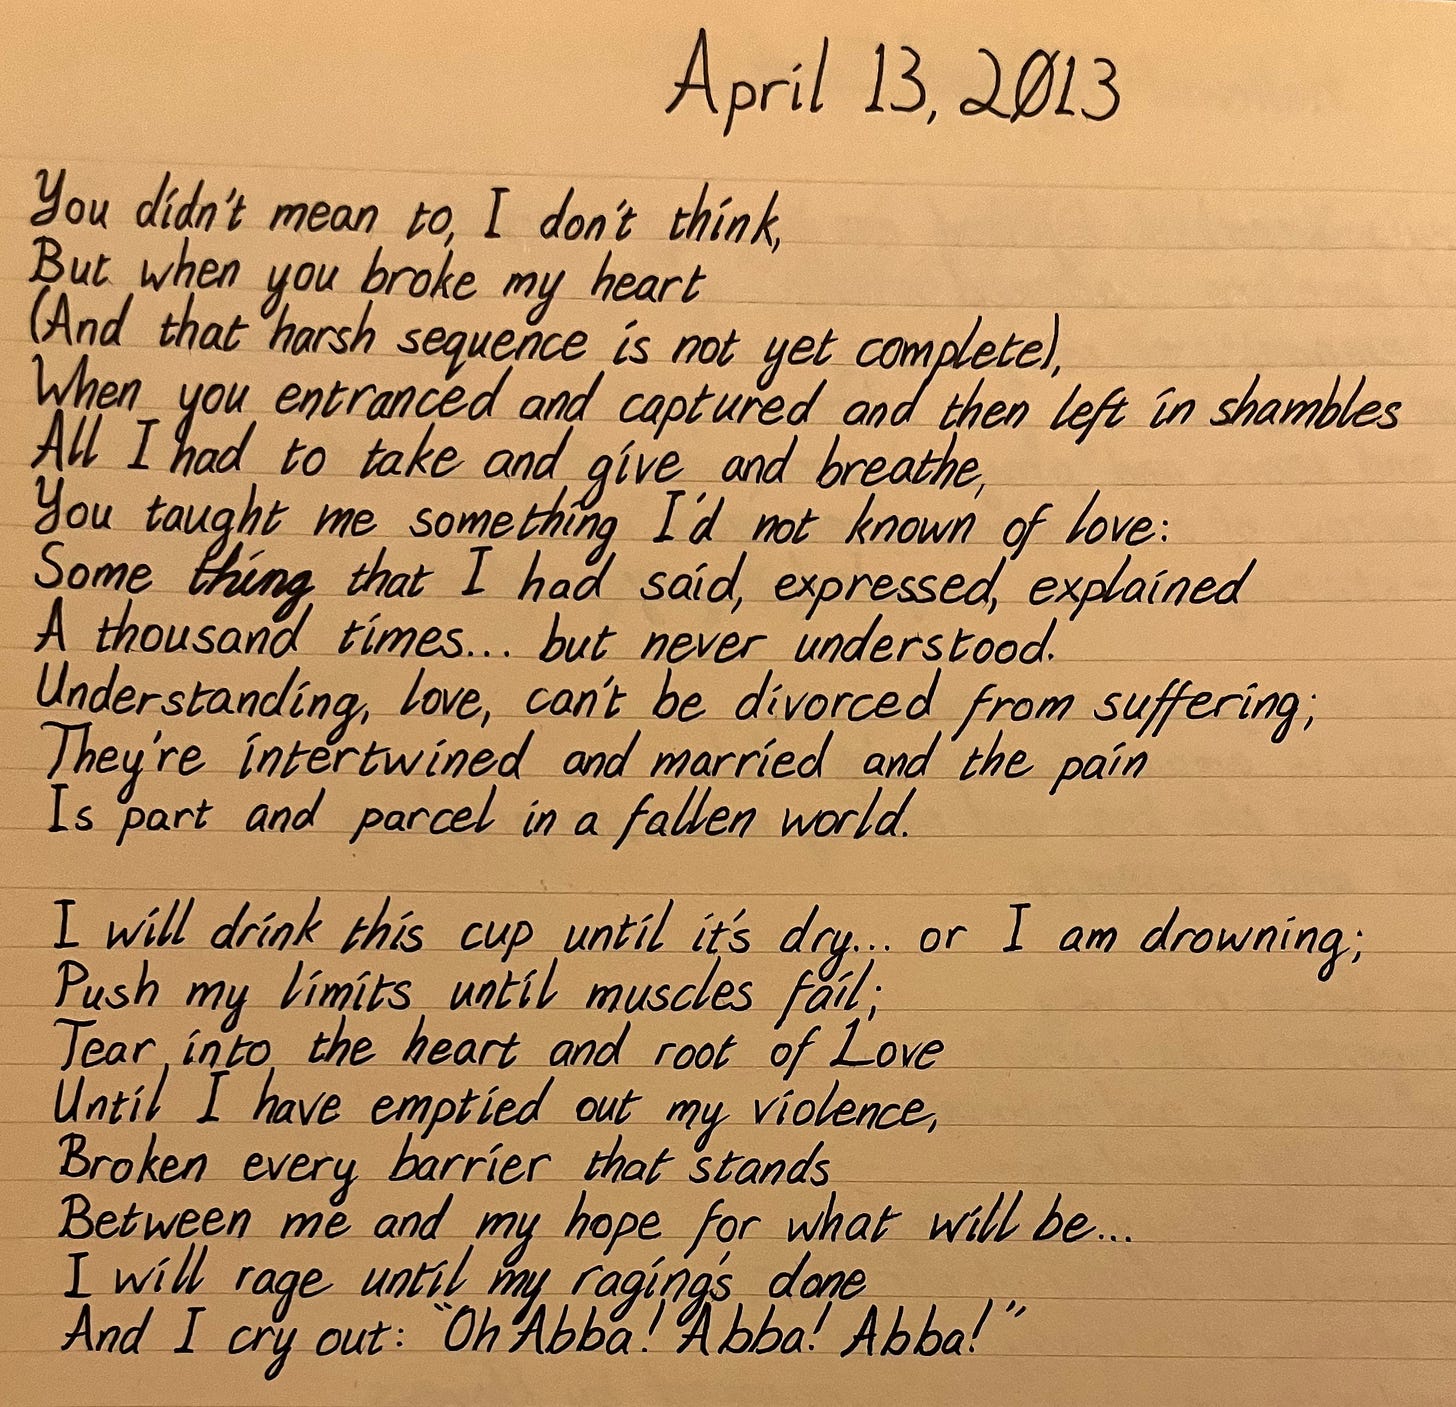 April 13, 2013
You didn't mean to, I don't think,
But when you broke my heart
(And that harsh sequence is not yet complete),
When you entranced and captured and then left in shambles
All I had to take and give and breathe,
You taught me something I'd not known of love:
Some thing that I had said, expressed, explained
A thousand times... but never understood.
Understanding, love, can't be divorced from suffering;
They're intertwined and married and the pain
Is part and parcel in a fallen world.
I will drink this cup until it's dry... or I am drowning;
Push my limits until muscles fail;
Tear into the heart and root of Love
Until I have emptied out my violence,
Broken every barrier that stands
Between me and my hope for what will be...
I will rage until my raging's done
And I cry out: "Oh Abba! Abba! Abba!"